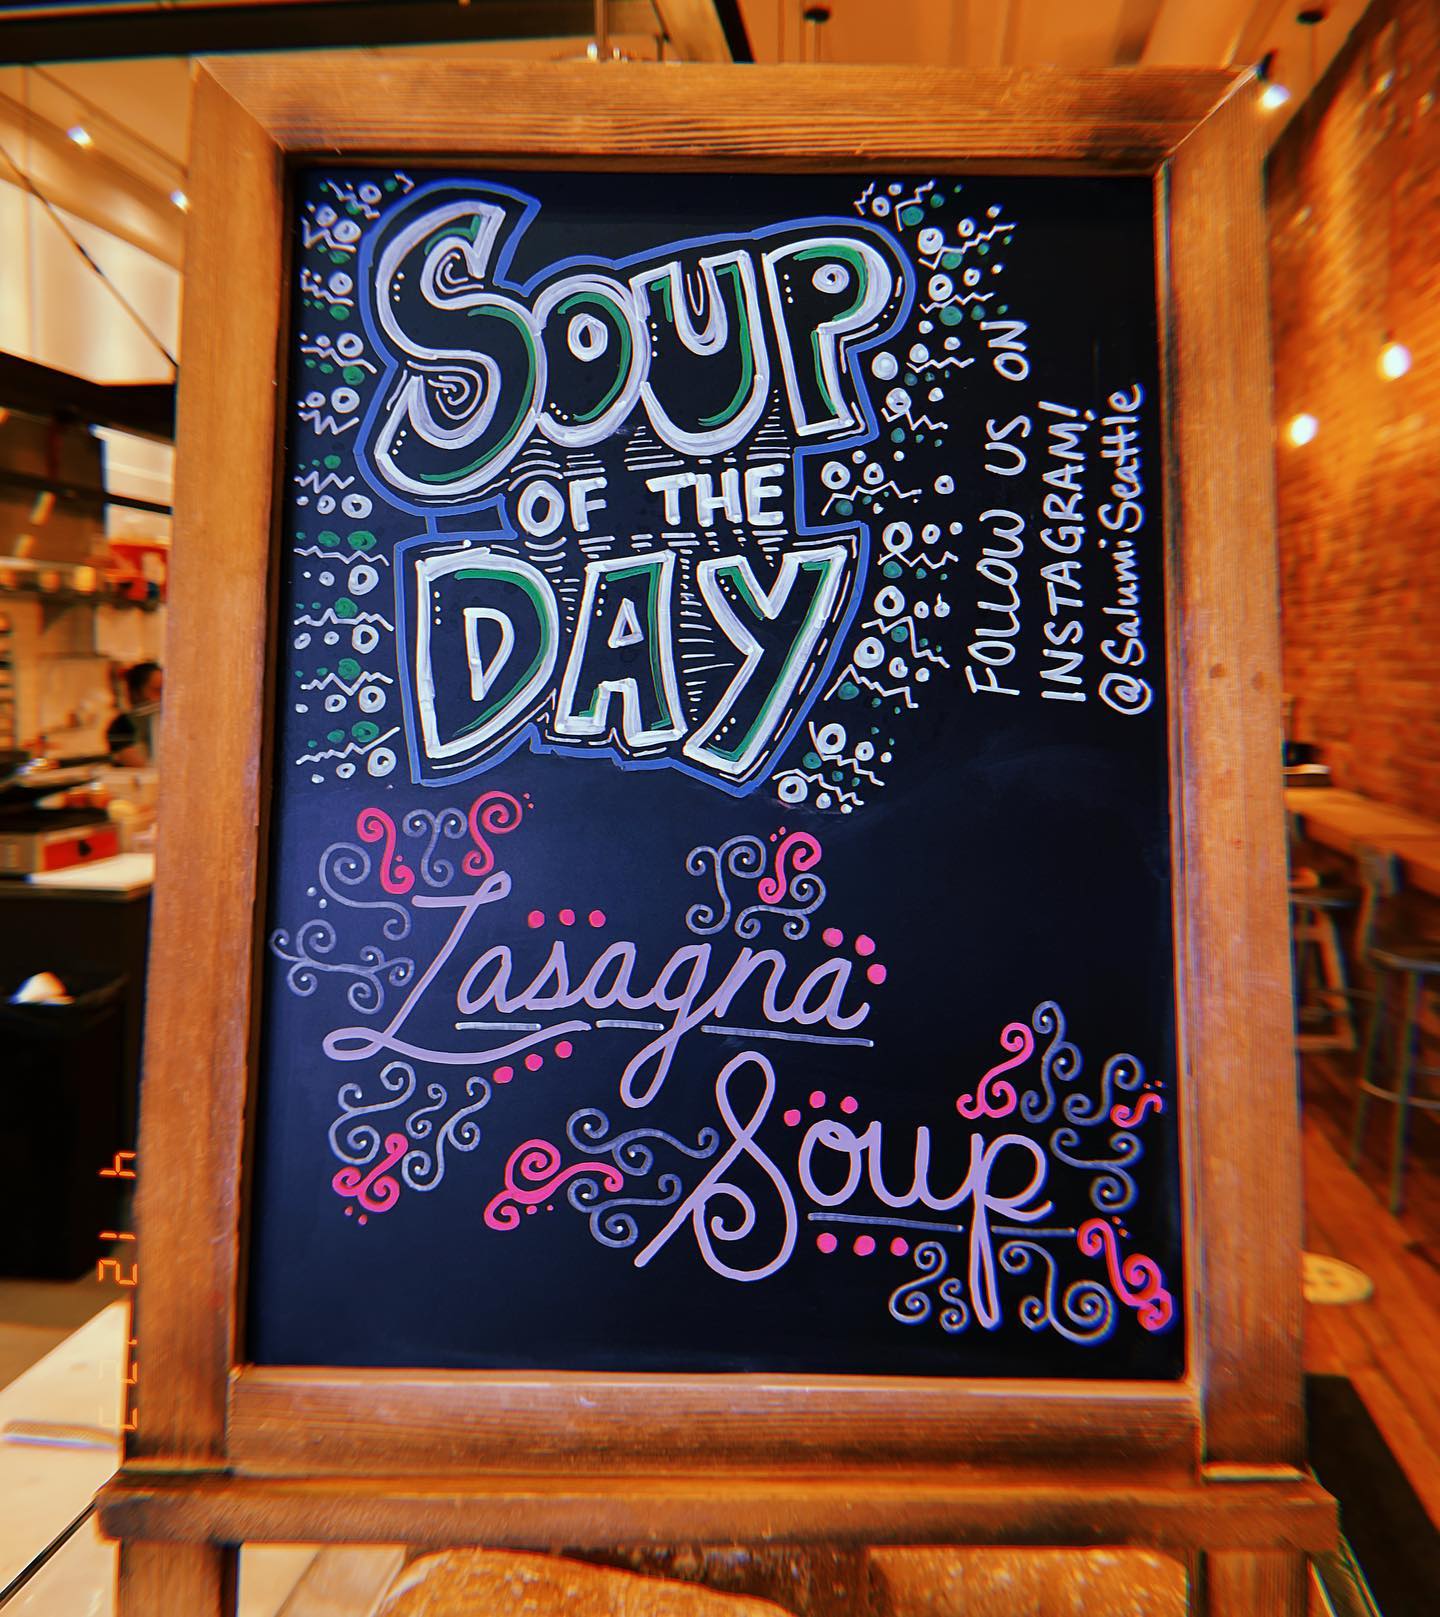 SOUP
OF THE
DAY
FOLLOW US ON
INSTAGRAM!
@SalumiSeattle
Lasagna
Soup
4 12 '23